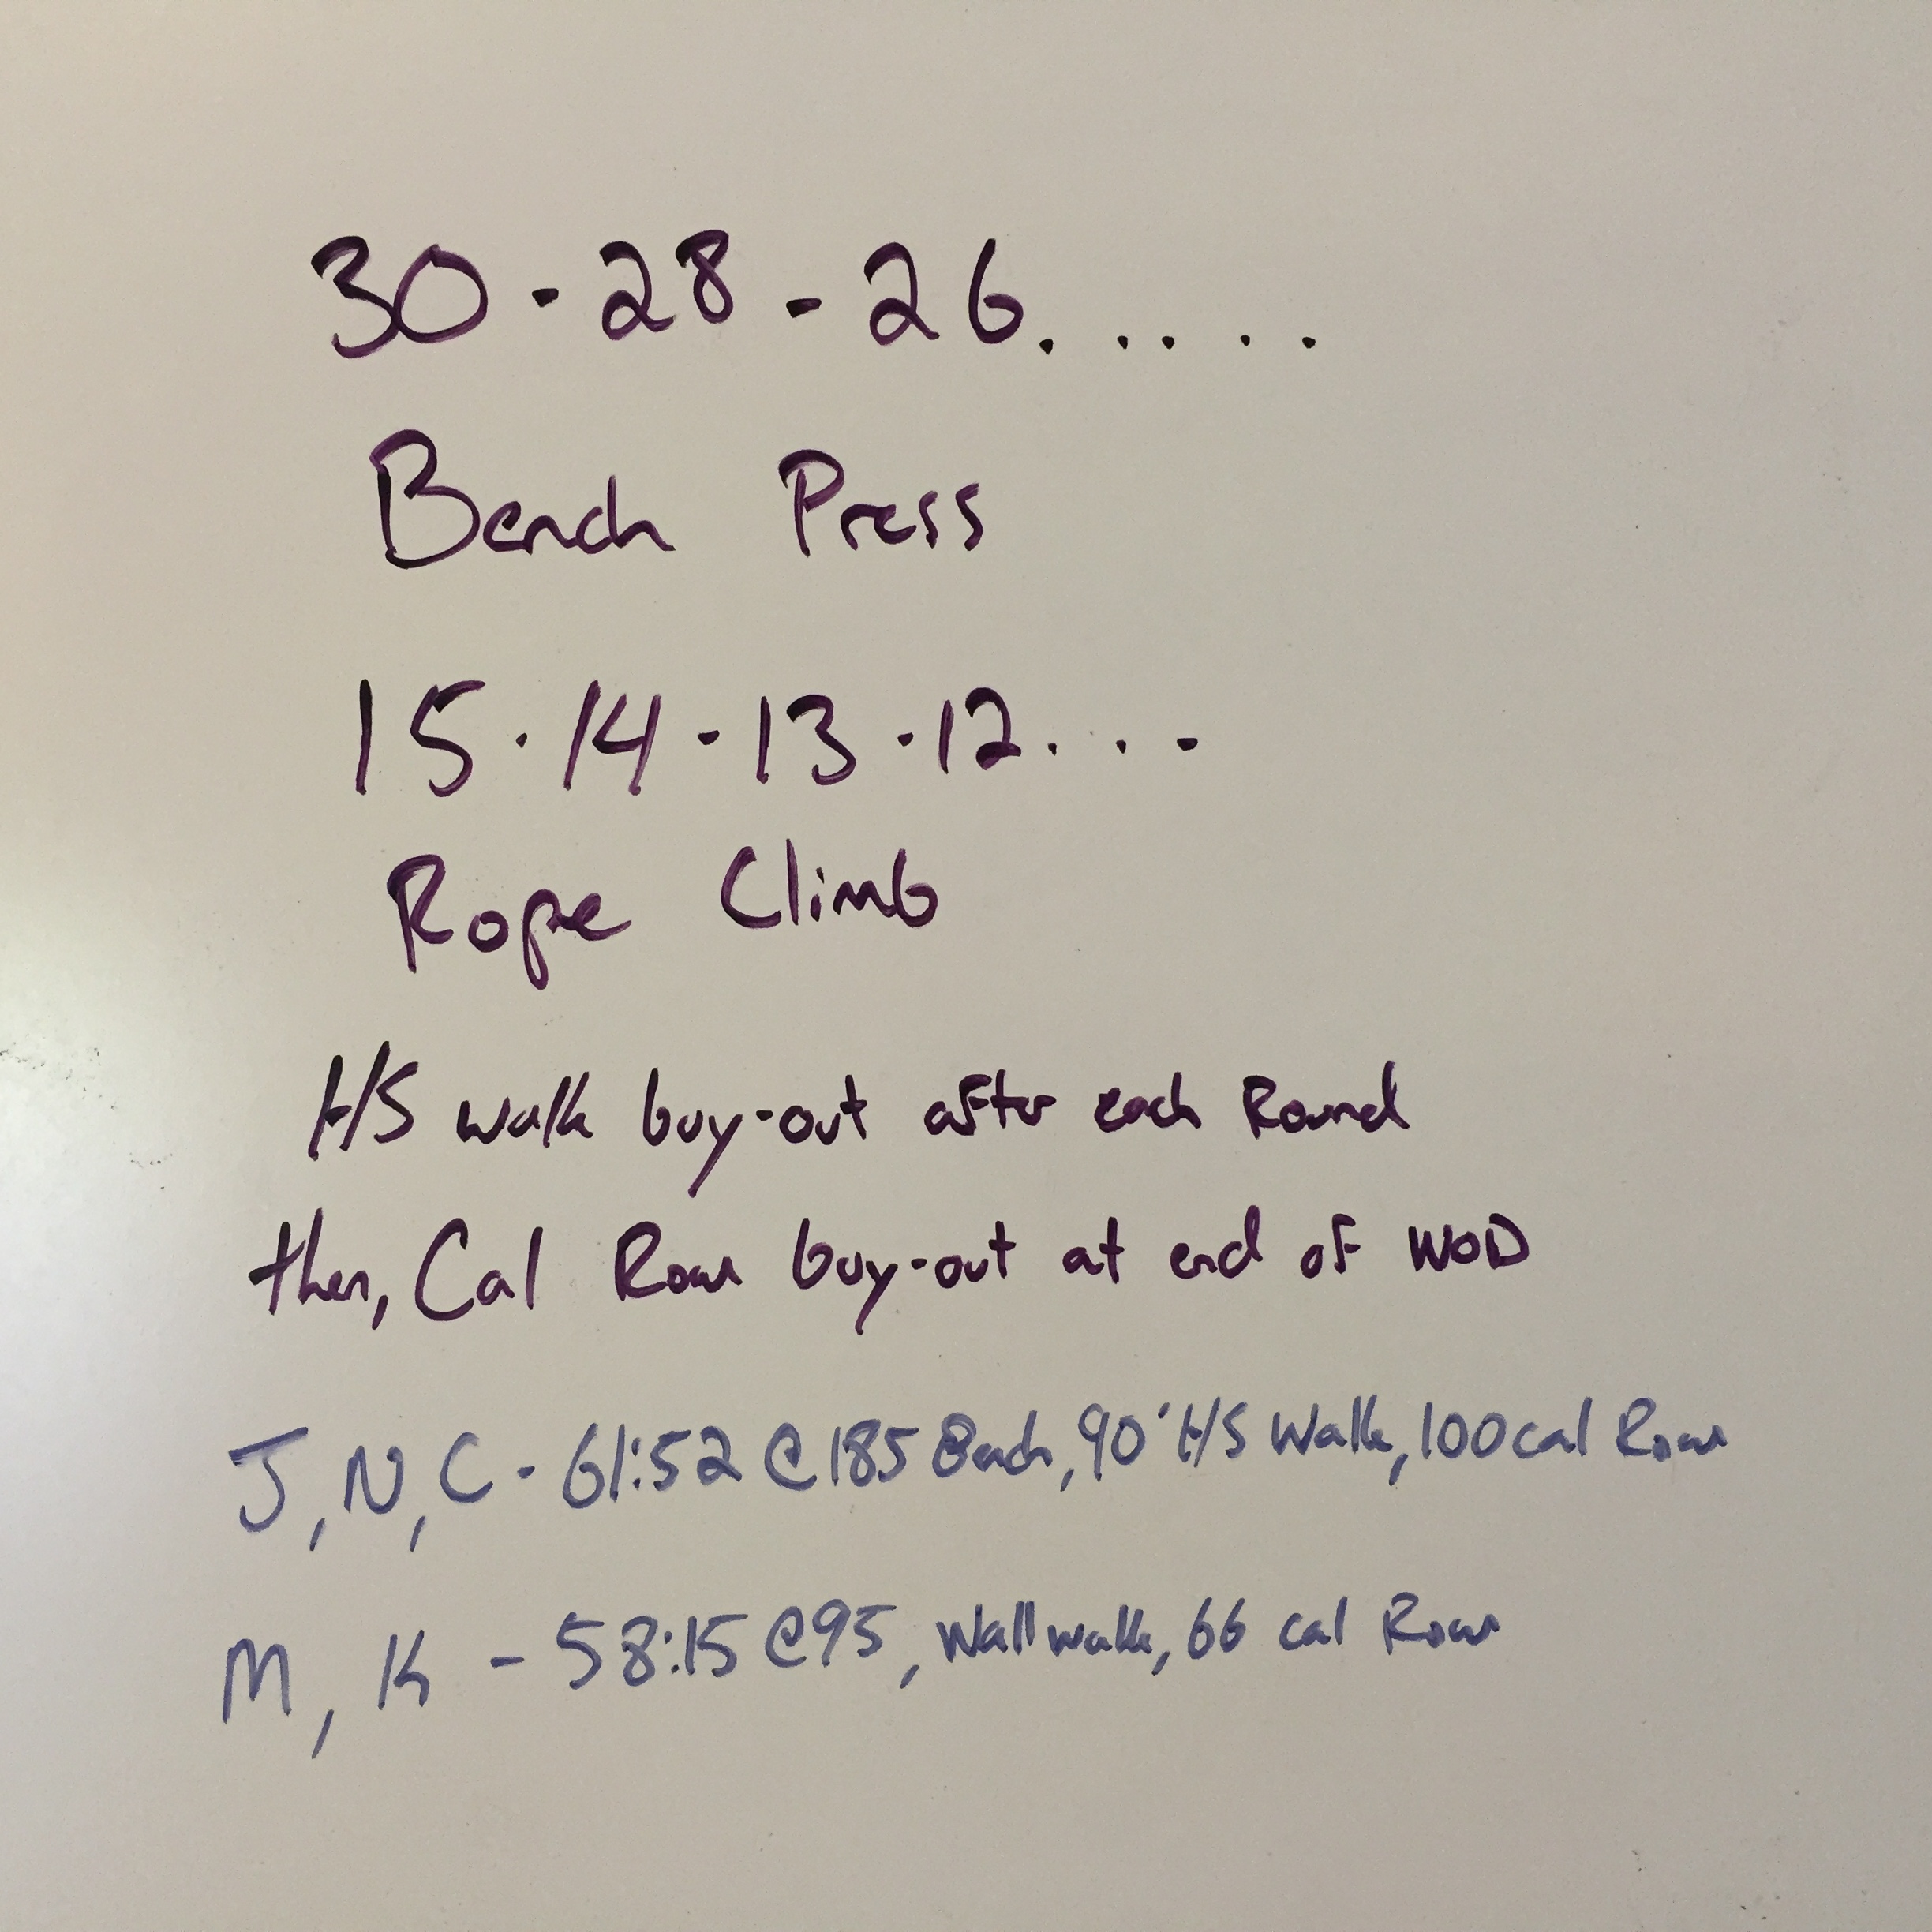 30 - 28 - 26. . . . .
Bench Press
15 · 14 - 13 - 12. . . -
Rope Climb
H/S walk buy-out after each Round
then, Cal Row buy-out at end of WOD
J, N, C - 61:52 @ 185 Bench, 90' H/S Walk, 100 cal Row
M, K - 58:15 @ 95, Wall walk, 66 cal Row